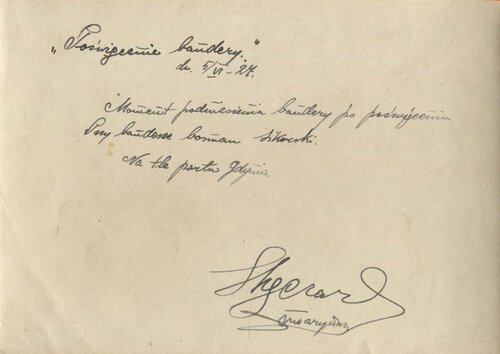 „Poświęcenie bandery.”
dn. 5/VI-27.
Moment podniesienia bandery po poświęceniu.
Przy banderze bosman Sikorski.
Na tle portu Gdynia